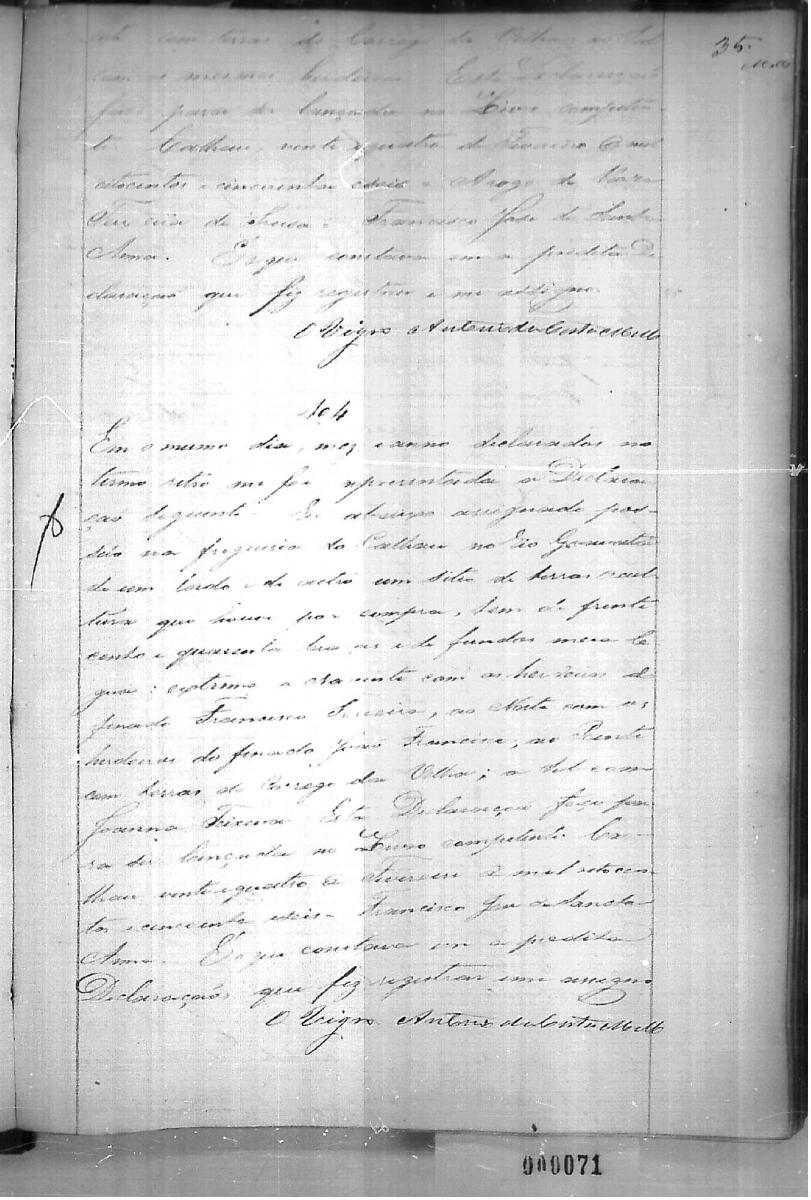 35.
Mello
este com terras do Corrego da Velha, ao Sul
com os mesmos herdeiros. Esta Declaração
faço para ser lançada no Livro competen-
te. Calhau, vente equatro de Fevereiro de mil
oitocentos e cincoenta eseis = Arogo de
Teixeira de Sousa = Francisco José de Santa
Anna. Eisque constava em a predita De
claração que fiz registrar e me assigno.
O Vigro Antonio da Costa Mello
No 4
Em o mesmo dia, mez e anno declarados no
termo retro me foi apresentada a Declara
ção seguente. Eu abaixo assignado pos-
súo na freguesia do Calhau no Rio
de um lado e de outro um sitio de terras
que houve por compra, tem de frente
cento e quarenta e de fundos meia le
gua: extrema a com os herdeiros do
finado Francisco, ao Norte com os
herdeiros do finado João Francisco; ao Poente
com terras do Corrego da Velha; a Sul com
Joanna Teixeira. Esta Declaração faço pa
ra ser lançada no Livro competente. Ca-
lhau vente equatro de Fevereiro de mil oitocen
tos ecincoenta eseis = Francisco José de Sancta
Anna. Eisque constava em a predita
Declaração, que fiz registrar eme assigno
O Vigro Antonio da Costa Mello
000071